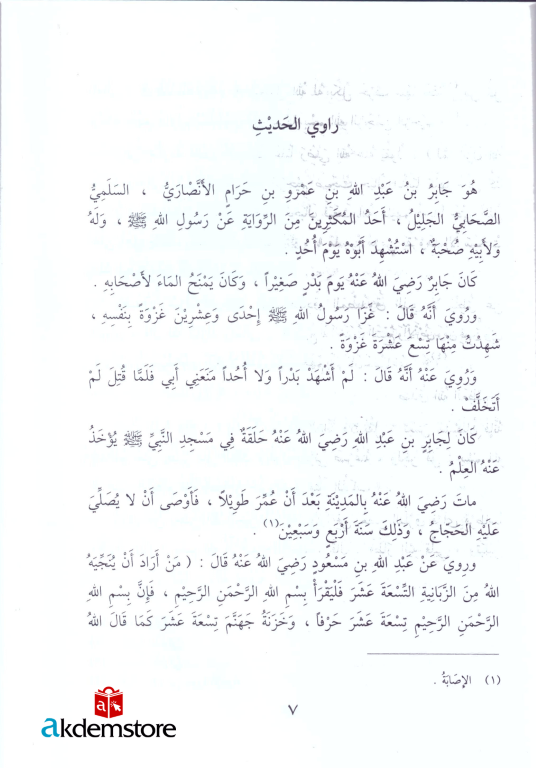 راوي الحَديْثِ
هُوَ جَابِرُ بنُ عَبْدِ اللهِ بنِ عَمْرِو بنِ حَرَامٍ الأَنْصَارِيُّ ، السَلَمِيُّ
الصَّحَابِيُّ الجَلِيْلُ ، أَحَدُ المُكْثِرِيْنَ مِنَ الرِّوَايَةِ عَنْ رَسُولِ اللهِ ﷺ ، وَلَهُ
وَلأَبِيْهِ صُحْبَةٌ ، اسْتُشْهِدَ أَبُوْهُ يَوْمَ أُحُدٍ .
كَانَ جَابِرٌ رَضِيَ اللهُ عَنْهُ يَومَ بَدْرٍ صَغِيْراً ، وَكَانَ يَمْنَحُ المَاءَ لأَصْحَابِهِ .
ورُويَ أَنَّهُ قَالَ : غَزَا رَسُولُ اللهِ ﷺ إِحْدَى وَعِشْرِيْنَ غَزْوَةً بِنَفْسِهِ ،
شَهِدْتُ مِنْهَا تِسْعَ عَشْرَةَ غَزْوَةً .
وَرُوِيَ عَنْهُ أَنَّهُ قَالَ : لَمْ أَشْهَدْ بَدْراً وَلا أُحُداً مَنَعَنِي أَبِي فَلَمَّا قُتِلَ لَمْ
أَتَخَلَّفْ .
كَانَ لِجَابِرِ بنِ عَبْدِ اللهِ رَضِيَ اللهُ عَنْهُ حَلَقَةٌ فِي مَسْجِدِ النَّبِيِّ ﷺ يُؤْخَذُ
عَنْهُ العِلْمُ .
ماتَ رَضِيَ اللهُ عَنْهُ بِالمَدِيْنَةِ بَعْدَ أَنْ عُمِّرَ طَوِيْلاً ، فَأَوْصَى أَنْ لا يُصَلِّيَ
عَلَيْهِ الحَجَّاجُ ، وَذَلِكَ سَنَةَ أَرْبَعٍ وَسَبْعِيْنَ(١) .
ورِويَ عَنْ عَبْدِ اللهِ بنِ مَسْعُودٍ رَضِيَ اللهُ عَنْهُ قَالَ : ( مَنْ أَرَادَ أَنْ يُنَجِّيَهُ
اللهُ مِنَ الزَّبَانِيَةِ التِّسْعَةَ عَشَرَ فَلْيَقْرَأْ بِسْمِ اللهِ الرَّحْمَنِ الرَّحِيْمِ ، فَإِنَّ بِسْمِ اللهِ
الرَّحْمَنِ الرَّحِيْمِ تِسْعَةَ عَشَرَ حَرْفاً ، وَخَزَنَةُ جَهَنَّمَ تِسْعَةَ عَشَرَ كَمَا قَالَ اللهُ
(١) الإِصَابَةُ .
٧
akdemstore